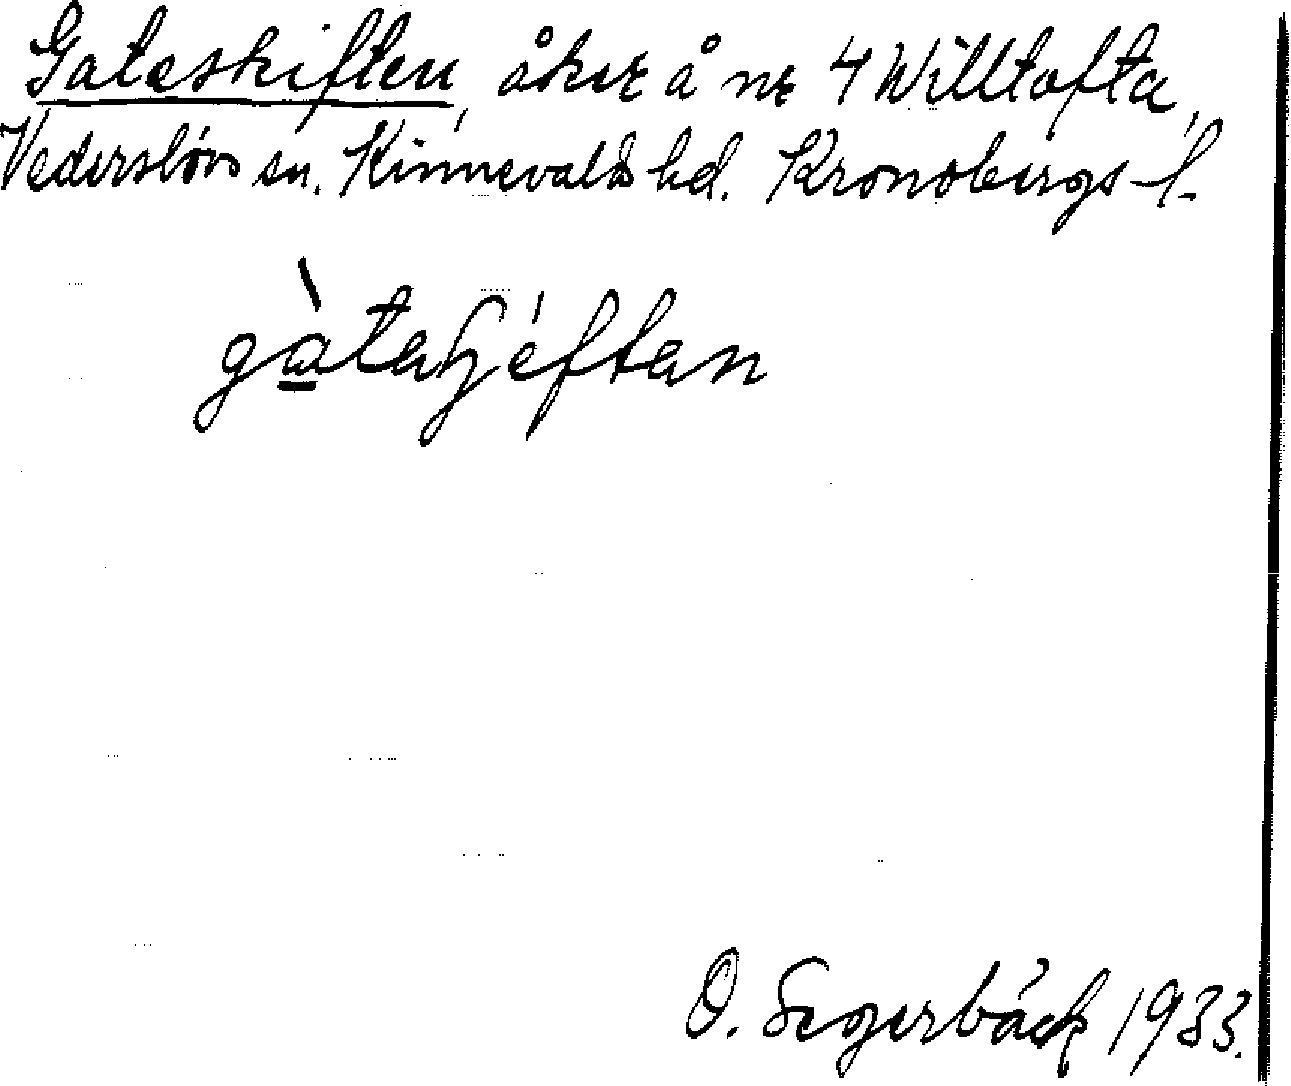 Gateskiften, åker å nr 4 Willtofta,
Vederslövs sn. Kinnevalds hd. Kronobergs l.
gàtaʃéftan
O. Segerbäck 1933.